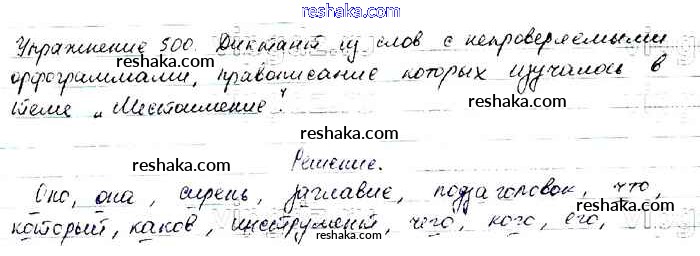 reshaka.com
Упражнение 500. Диктант из слов с непроверяемыми
reshaka.com
орфограммами, правописание которых изучалось в
reshaka.com
теме „Местоимение“
reshaka.com
reshaka.com
Решение.
reshaka.com
Оно, она, сирень, заглавие, подзаголовок, что,
reshaka.com
который, каков, инструмент, чего, кого, его,
reshaka.com